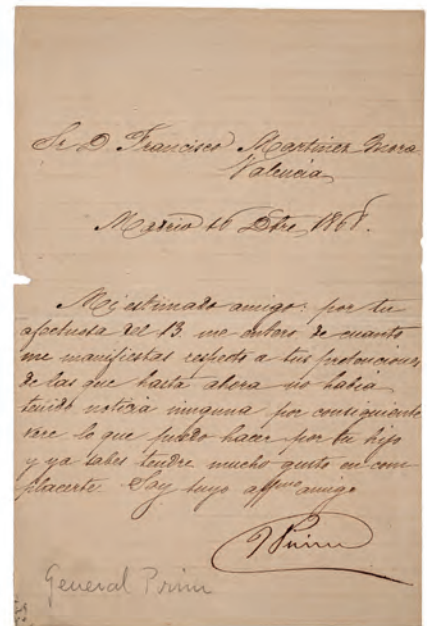 Sr D Francisco Martinez Mora
Valencia
Madrid 16 Dbre 1868.
Mi estimado amigo: por tu
afectuosa del 13. me entero de cuanto
me manifiestas respecto a tus pretenciones
de las que hasta ahora no habia
tenido noticia ninguna por consiguiente
vere lo que puedo hacer por tu hijo
y ya sabes tendre mucho gusto en com-
placerte. Soy tuyo affmo amigo
J Prim
General Prim